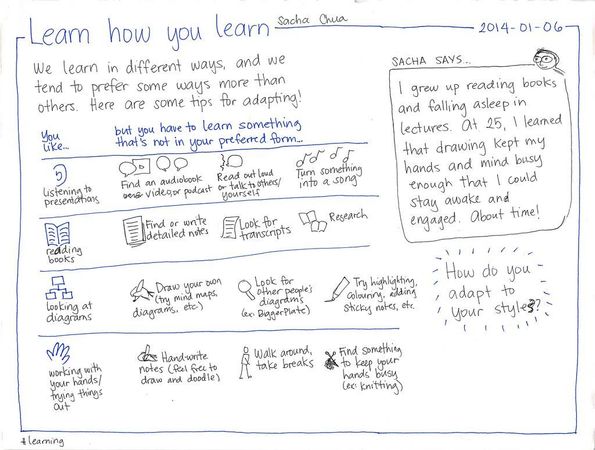 Learn how you learn
Sacha Chua
2014-01-06
We learn in different ways, and we
tend to prefer some ways more than
others. Here are some tips for adapting!
You
like...
but you have to learn something
that's not in your preferred form...
listening to
presentations
Find an audiobook
video, or podcast
Read out loud
or talk to others/
yourself
Turn something
into a song
reading
books
Find or write
detailed notes
Look for
transcripts
Research
looking at
diagrams
Draw your own
(try mind maps,
diagrams, etc.)
Look for
other people's
diagrams
(ex: BiggerPlate)
Try highlighting,
colouring, adding
sticky notes, etc.
working with
your hands/
trying things
out
Hand-write
notes (feel free to
draw and doodle)
Walk around,
take breaks
Find something
to keep your
hands busy
(ex: knitting)
SACHA SAYS...
I grew up reading books
and falling asleep in
lectures. At 25, I learned
that drawing kept my
hands and mind busy
enough that I could
stay awake and
engaged. About time!
How do you
adapt to
your style?
#learning